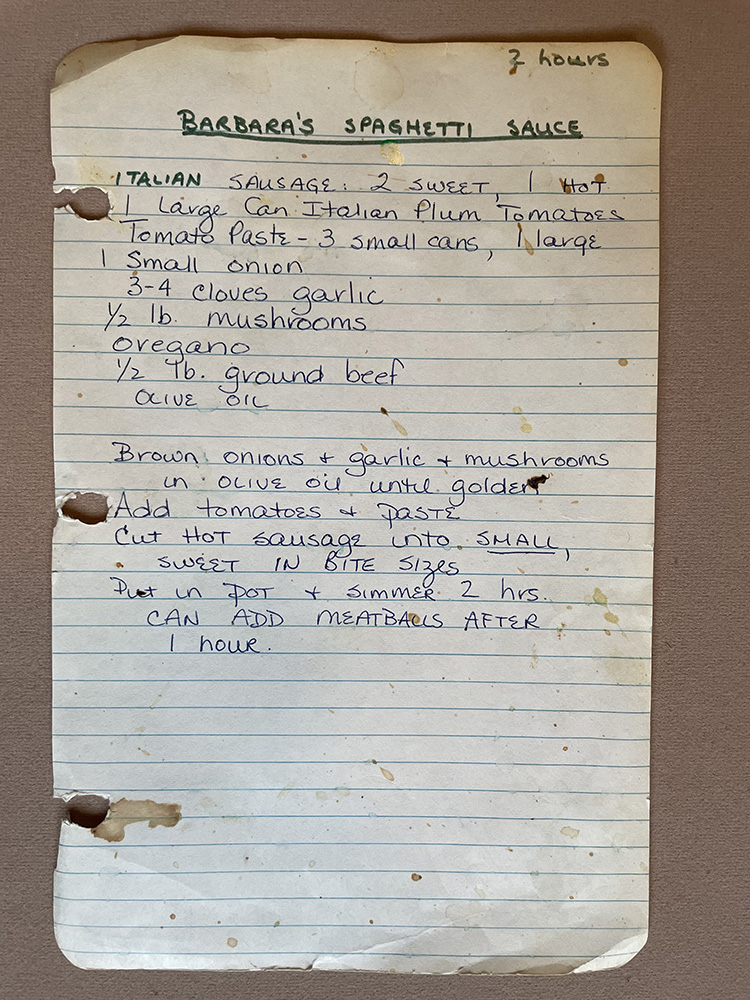 2 hours
BARBARA'S SPAGHETTI SAUCE
ITALIAN SAUSAGE: 2 SWEET, 1 HOT
1 Large Can Italian Plum Tomatoes
Tomato Paste - 3 small cans, 1 large
1 Small onion
3-4 cloves garlic
1/2 lb. mushrooms
oregano
1/2 lb. ground beef
OLIVE OIL
Brown onions + garlic + mushrooms
in OLIVE oil until golden
Add tomatoes + PASTE
Cut HOT sausage into SMALL,
SWEET IN BITE SIZES
Put in POT + SIMMER 2 hrs.
CAN ADD MEATBALLS AFTER
1 hour.